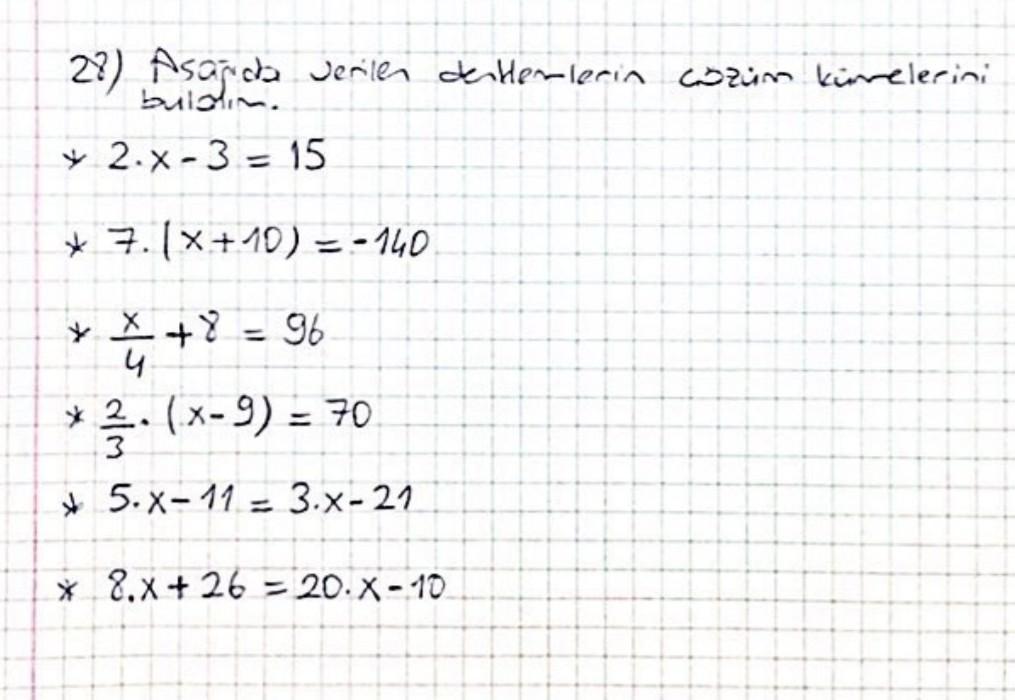 28) Aşağıda verilen denklemlerin çözüm kümelerini
bulalım.
* 2.x - 3 = 15
* 7.(x+10) = -140
* x/4 + 8 = 96
* 2/3 . (x-9) = 70
* 5.x - 11 = 3.x - 21
* 8.x + 26 = 20.x - 10